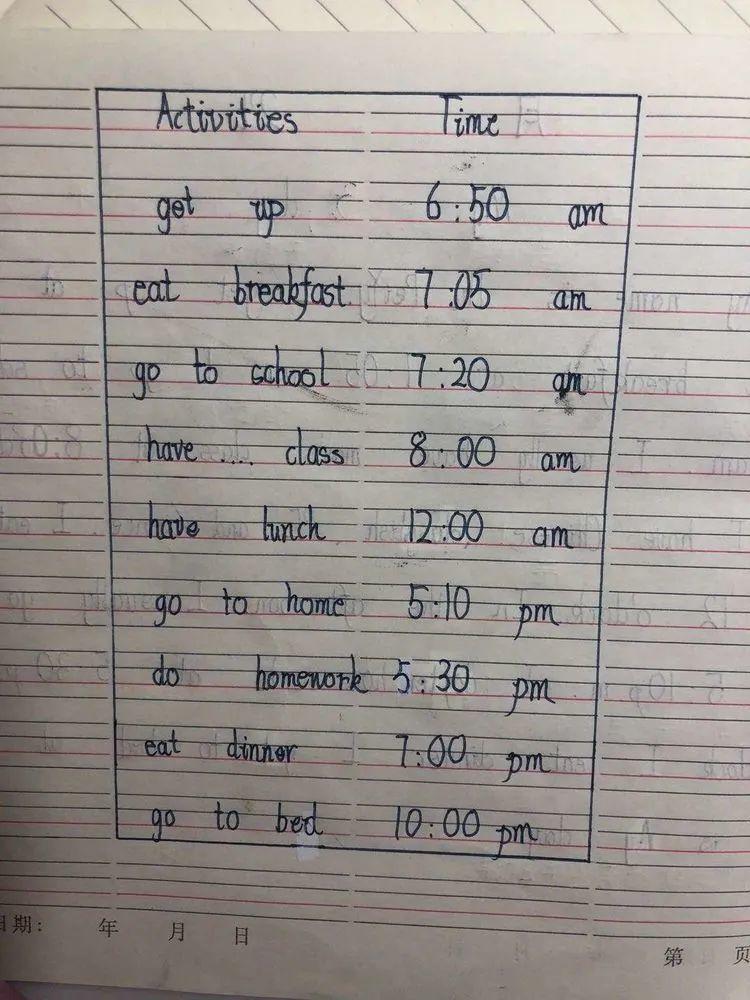 Activities Time
get up 6:50 am
eat breakfast 7:05 am
go to school 7:20 am
have .... class 8:00 am
have lunch 12:00 am
go to home 5:10 pm
do homework 5:30 pm
eat dinner 7:00 pm
go to bed 10:00 pm
日期: 年 月 日
第 页